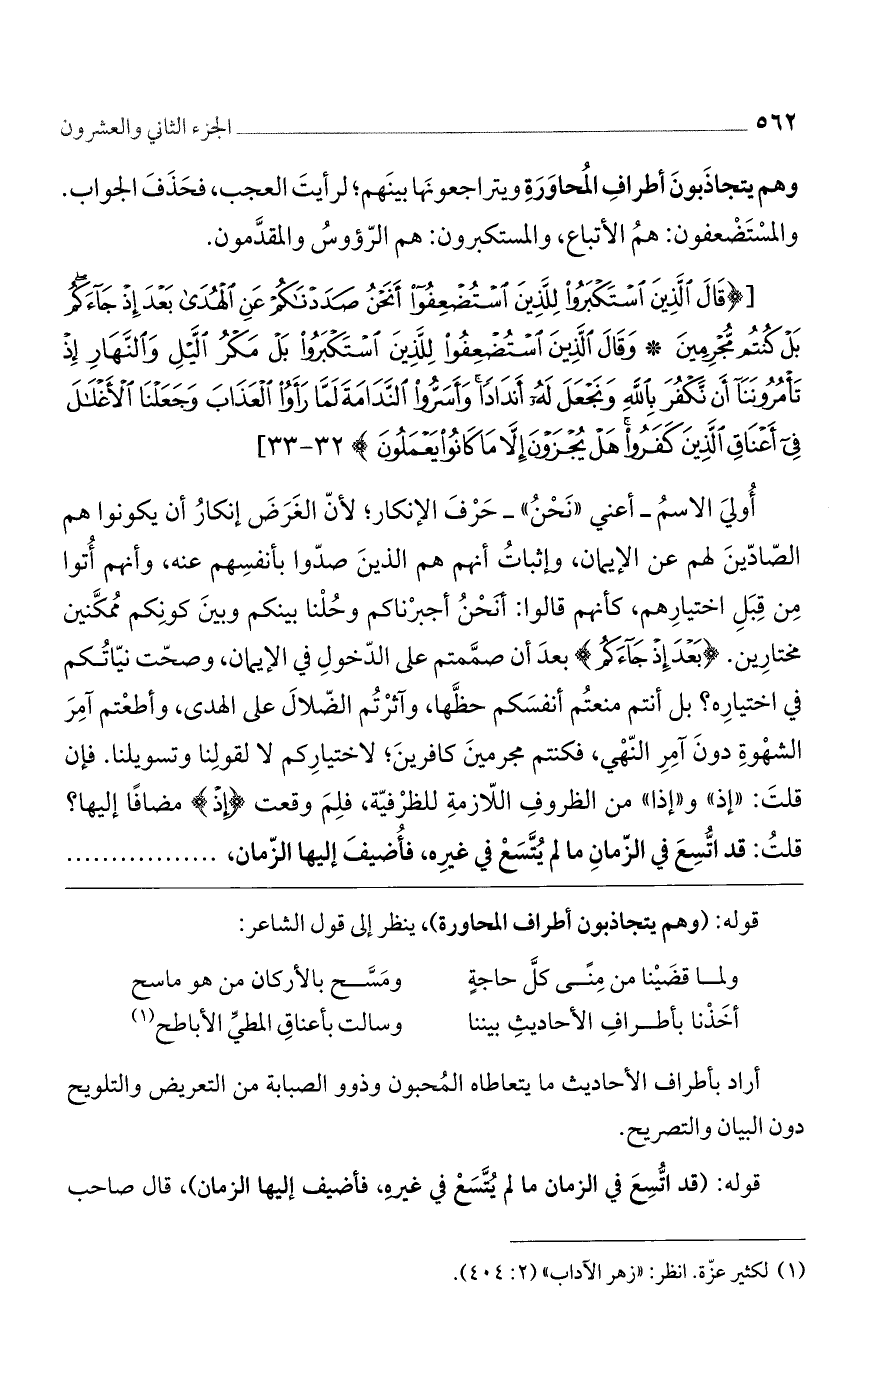 ٥٦٢ ــــــــــــــــــــ الجزء الثاني والعشرون
وهم يتجاذَبونَ أطرافِ المُحاوَرَةِ ويتراجعونَها بينَهم؛ لرأيتَ العجب، فحَذَفَ الجواب.
والمسْتَضْعفون: همُ الأتباع، والمستكبرون: هم الرّؤوسُ والمقدَّمون.
[﴿قَالَ ٱلَّذِينَ ٱسْتَكْبَرُوا۟ لِلَّذِينَ ٱسْتُضْعِفُوٓا۟ أَنَحْنُ صَدَدْنَٰكُمْ عَنِ ٱلْهُدَىٰ بَعْدَ إِذْ جَآءَكُم ۖ
بَلْ كُنتُم مُّجْرِمِينَ * وَقَالَ ٱلَّذِينَ ٱسْتُضْعِفُوا۟ لِلَّذِينَ ٱسْتَكْبَرُوا۟ بَلْ مَكْرُ ٱلَّيْلِ وَٱلنَّهَارِ إِذْ
تَأْمُرُونَنَآ أَن نَّكْفُرَ بِٱللَّهِ وَنَجْعَلَ لَهُۥٓ أَندَادًا ۚ وَأَسَرُّوا۟ ٱلنَّدَامَةَ لَمَّا رَأَوُا۟ ٱلْعَذَابَ وَجَعَلْنَا ٱلْأَغْلَٰلَ
فِىٓ أَعْنَاقِ ٱلَّذِينَ كَفَرُوا۟ ۚ هَلْ يُجْزَوْنَ إِلَّا مَا كَانُوا۟ يَعْمَلُونَ﴾ ٣٢-٣٣]
أُوليَ الاسمُ ـ أعني «نَحْنُ» ـ حَرْفَ الإنكار؛ لأنّ الغَرَضَ إنكارُ أن يكونوا هم
الصّادّينَ لهم عن الإيمان، وإثباتُ أنهم هم الذينَ صدّوا بأنفسِهم عنه، وأنهم أُتوا
مِن قِبَلِ اختيارِهم، كأنهم قالوا: أنَحْنُ أجبرْناكم وحُلْنا بينكم وبينَ كونِكم مُمكَّنين
مختارين. ﴿بَعْدَ إِذْ جَآءَكُم﴾ بعدَ أن صمَّمتم على الدّخولِ في الإيمان، وصحّت نيّاتُكم
في اختيارِه؟ بل أنتم منعتُم أنفسَكم حظَّها، وآثرْتُم الضّلالَ على الهدى، وأطعْتم آمِرَ
الشهْوةِ دونَ آمِرِ النّهْي، فكنتم مجرمينَ كافرينَ؛ لاختيارِكم لا لقولِنا وتسويلنا. فإن
قلتَ: «إذ» و«إذا» من الظروفِ اللّازمةِ للظرْفيّة، فلِمَ وقعت ﴿إِذْ﴾ مضافًا إليها؟
قلتُ: قد اتُّسِعَ في الزّمانِ ما لم يُتَّسَعْ في غيرِه، فأُضيفَ إليها الزّمان، .................
قوله: (وهم يتجاذبون أطراف المحاورة)، ينظر إلى قول الشاعر:
ولمـا قضَيْنا من مِنًـى كلَّ حاجةٍ ومَسَّـح بالأركان من هو ماسح
أخَذْنا بأطـرافِ الأحاديثِ بيننا وسالت بأعناقِ المطيِّ الأباطح(١)
أراد بأطراف الأحاديث ما يتعاطاه المُحبون وذوو الصبابة من التعريض والتلويح
دون البيان والتصريح.
قوله: (قد اتُّسِعَ في الزمان ما لم يُتَّسَعْ في غيرِه، فأضيف إليها الزمان)، قال صاحب
(١) لكثير عزّة. انظر: «زهر الآداب» (٢: ٤٠٤).